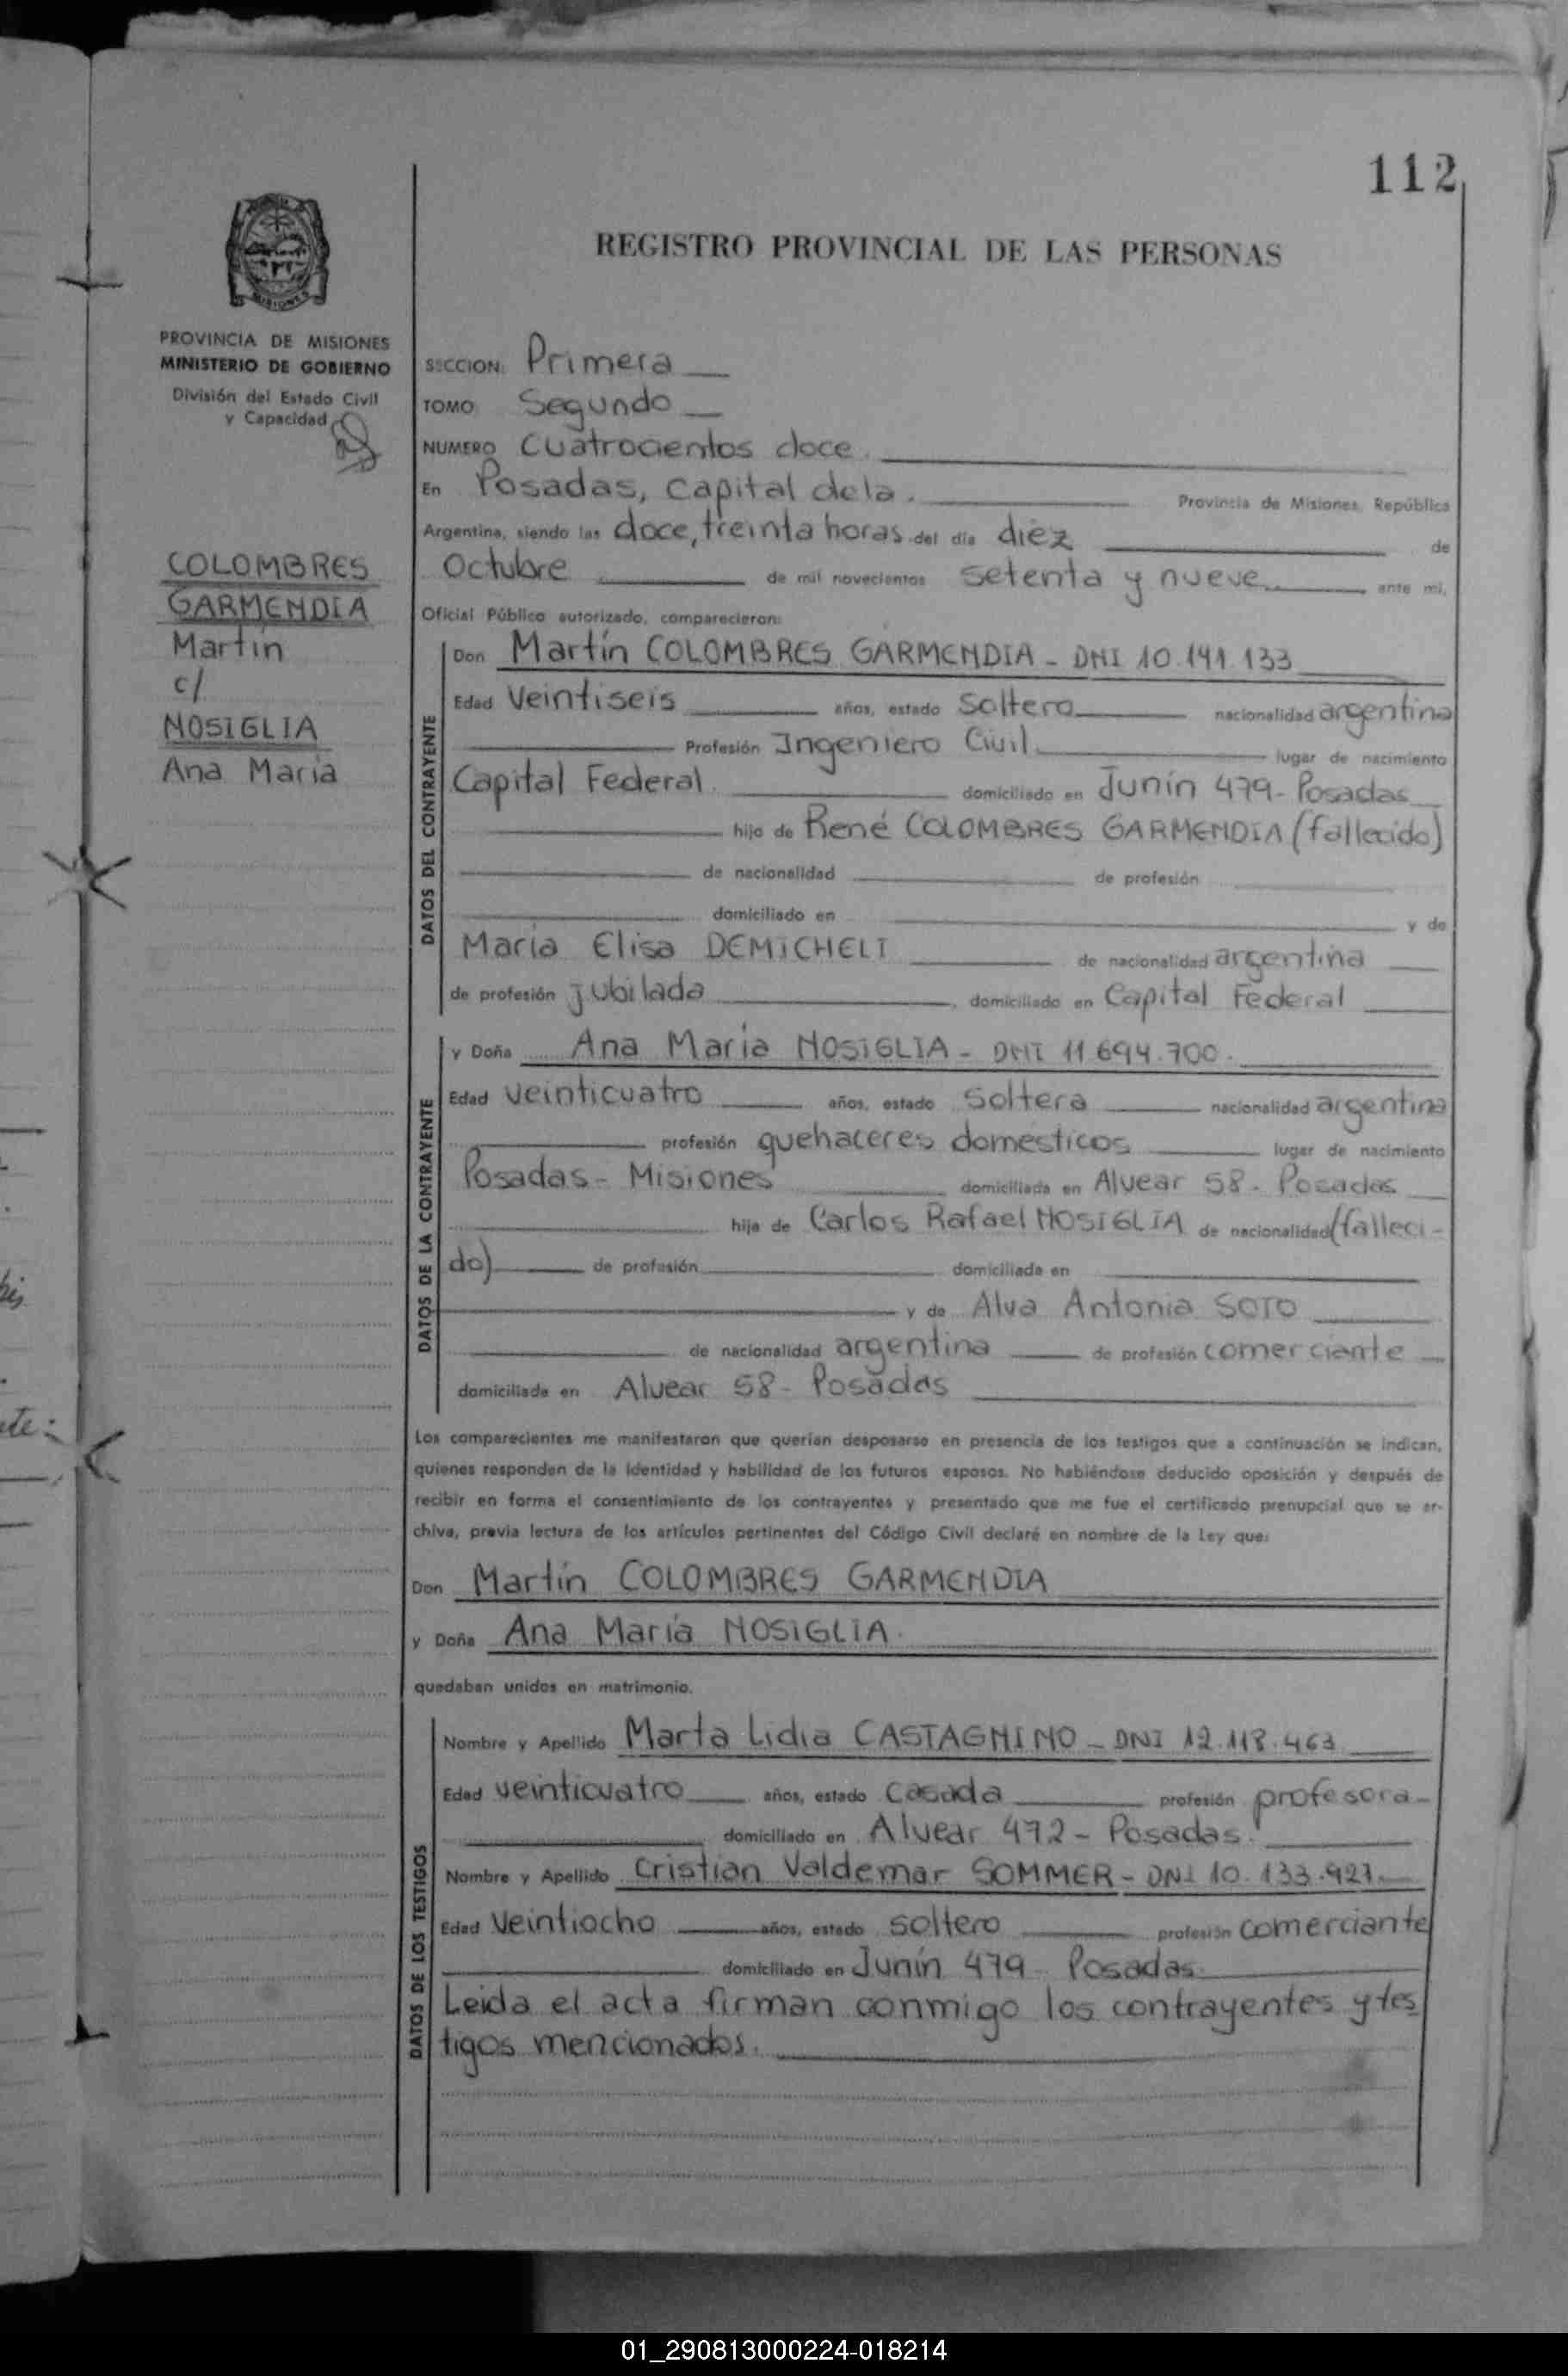 112
REGISTRO PROVINCIAL DE LAS PERSONAS
MISIONES
PROVINCIA DE MISIONES
MINISTERIO DE GOBIERNO
División del Estado Civil
y Capacidad
COLOMBRES
GARMENDIA
Martín
c/
NOSIGLIA
Ana María
SECCION: Primera
TOMO Segundo
NUMERO Cuatrocientos doce.
En Posadas, Capital de la. Provincia de Misiones, República
Argentina, siendo las doce, treinta horas del día diez de
Octubre de mil novecientos setenta y nueve ante mi,
Oficial Público autorizado, comparecieron:
DATOS DEL CONTRAYENTE
Don Martín COLOMBRES GARMENDIA - DNI 10.141.133
Edad Veintiseis años, estado Soltero nacionalidad argentina
Profesión Ingeniero Civil lugar de nacimiento
Capital Federal. domiciliado en Junín 479 - Posadas
hijo de René COLOMBRES GARMENDIA (fallecido)
de nacionalidad de profesión
domiciliado en y de
María Elisa DEMICHELI de nacionalidad argentina
de profesión jubilada, domiciliado en Capital Federal
DATOS DE LA CONTRAYENTE
y Doña Ana María NOSIGLIA - DNI 11.694.700.
Edad veinticuatro años, estado Soltera nacionalidad argentina
profesión quehaceres domésticos lugar de nacimiento
Posadas - Misiones domiciliada en Alvear 58 - Posadas
hija de Carlos Rafael NOSIGLIA de nacionalidad (falleci-
do) de profesión domiciliada en
y de Alva Antonia SOTO
de nacionalidad argentina de profesión comerciante
domiciliada en Alvear 58 - Posadas
Los comparecientes me manifestaron que querían desposarse en presencia de los testigos que a continuación se indican,
quienes responden de la identidad y habilidad de los futuros esposos. No habiéndose deducido oposición y después de
recibir en forma el consentimiento de los contrayentes y presentado que me fue el certificado prenupcial que se ar-
chiva, previa lectura de los artículos pertinentes del Código Civil declaré en nombre de la Ley que:
Don Martín COLOMBRES GARMENDIA
y Doña Ana María NOSIGLIA.
quedaban unidos en matrimonio.
DATOS DE LOS TESTIGOS
Nombre y Apellido Marta Lidia CASTAGNINO - DNI 12.118.463
Edad veinticuatro años, estado Casada profesión profesora -
domiciliado en Alvear 472 - Posadas.
Nombre y Apellido Cristian Valdemar SOMMER - DNI 10.133.921
Edad Veintiocho años, estado soltero profesión comerciante
domiciliado en Junín 479 - Posadas
Leida el acta firman conmigo los contrayentes y tes
tigos mencionados.
01_290813000224-018214